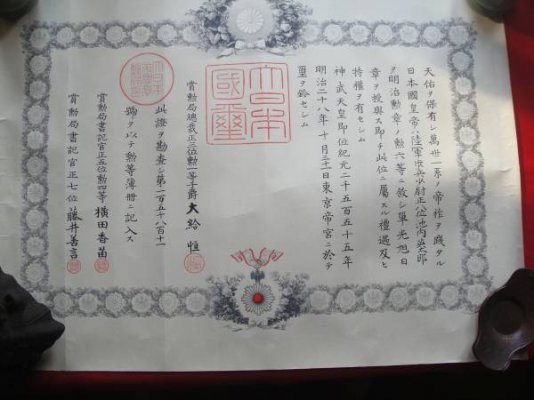 天佑ヲ保有シ萬世一系ノ帝祚ヲ踐タル
日本國皇帝ハ陸軍歩兵少尉正八位池内英太郎
ヲ明治勲章ノ勲六等ニ敘シ單光旭日
章ヲ授與ス即チ此位ニ屬スル禮遇及ヒ
特權ヲ有セシム
神武天皇即位紀元二千五百五十五年
明治二十八年十月三十一日東京帝宮ニ於テ
璽ヲ鈐セシム
大日本
國璽
賞勲局總裁正三位勲一等子爵大給恒
此證ヲ勘査シ第一百五十八百十一
號ヲ以テ勲等簿冊ニ記入ス
賞勲局書記官正五位勲四等橫田香苗
賞勲局書記官正七位藤井善言